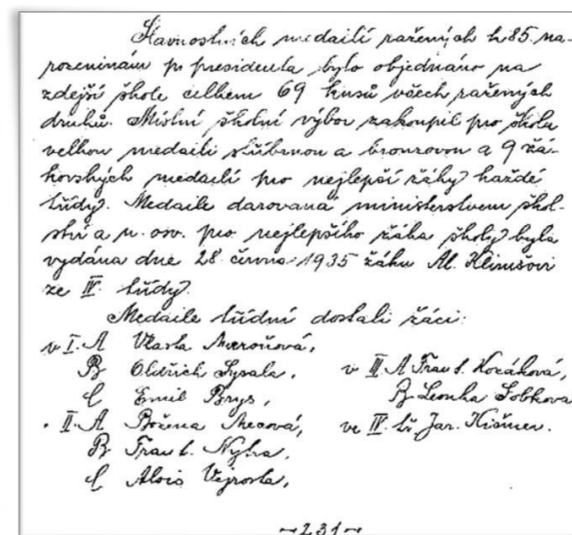 Slavnostních medailí ražených k 85. na-
rozeninám p. presidenta bylo objednáno na
zdejší škole celkem 69 kusů všech ražených
druhů. Místní školní výbor zakoupil pro školu
velkou medaili stříbrnou a bronzovou a 9 žá-
kovských medailí pro nejlepší žáky každé
třídy. Medaile darovaná ministerstvem škol-
ství a n. osv. pro nejlepšího žáka školy byla
vydána dne 28. června 1935 žáku Al. Klimšovi
ze IV. třídy.
Medaile třídní dostali žáci:
v I. A Vlasta
B Oldřich Sysala,
C Emil Brys,
II. A Božena
B Frant. Nytra,
C Alois
v III. A Frant. Kozáková,
B Leonka
ve IV. tř. Jar.
~231~